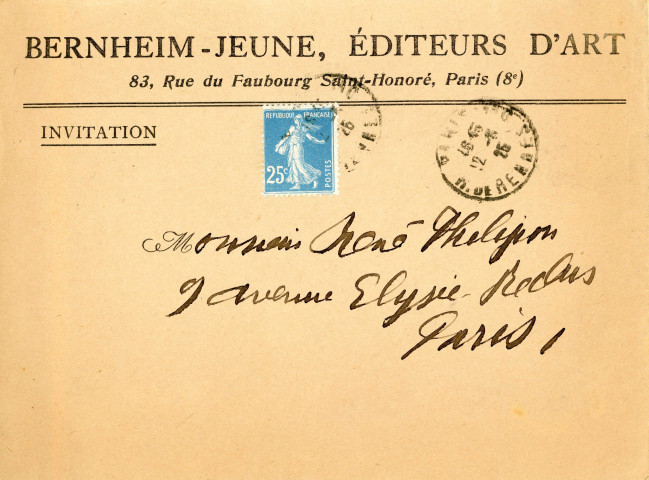 BERNHEIM-JEUNE, ÉDITEURS D'ART
83, Rue du Faubourg Saint-Honoré, Paris (8e)
INVITATION
REPUBLIQUE FRANÇAISE
25c
POSTES
R. DE RENNES
Monsieur René Phelipon
9 avenue Elysée-Reclus
Paris